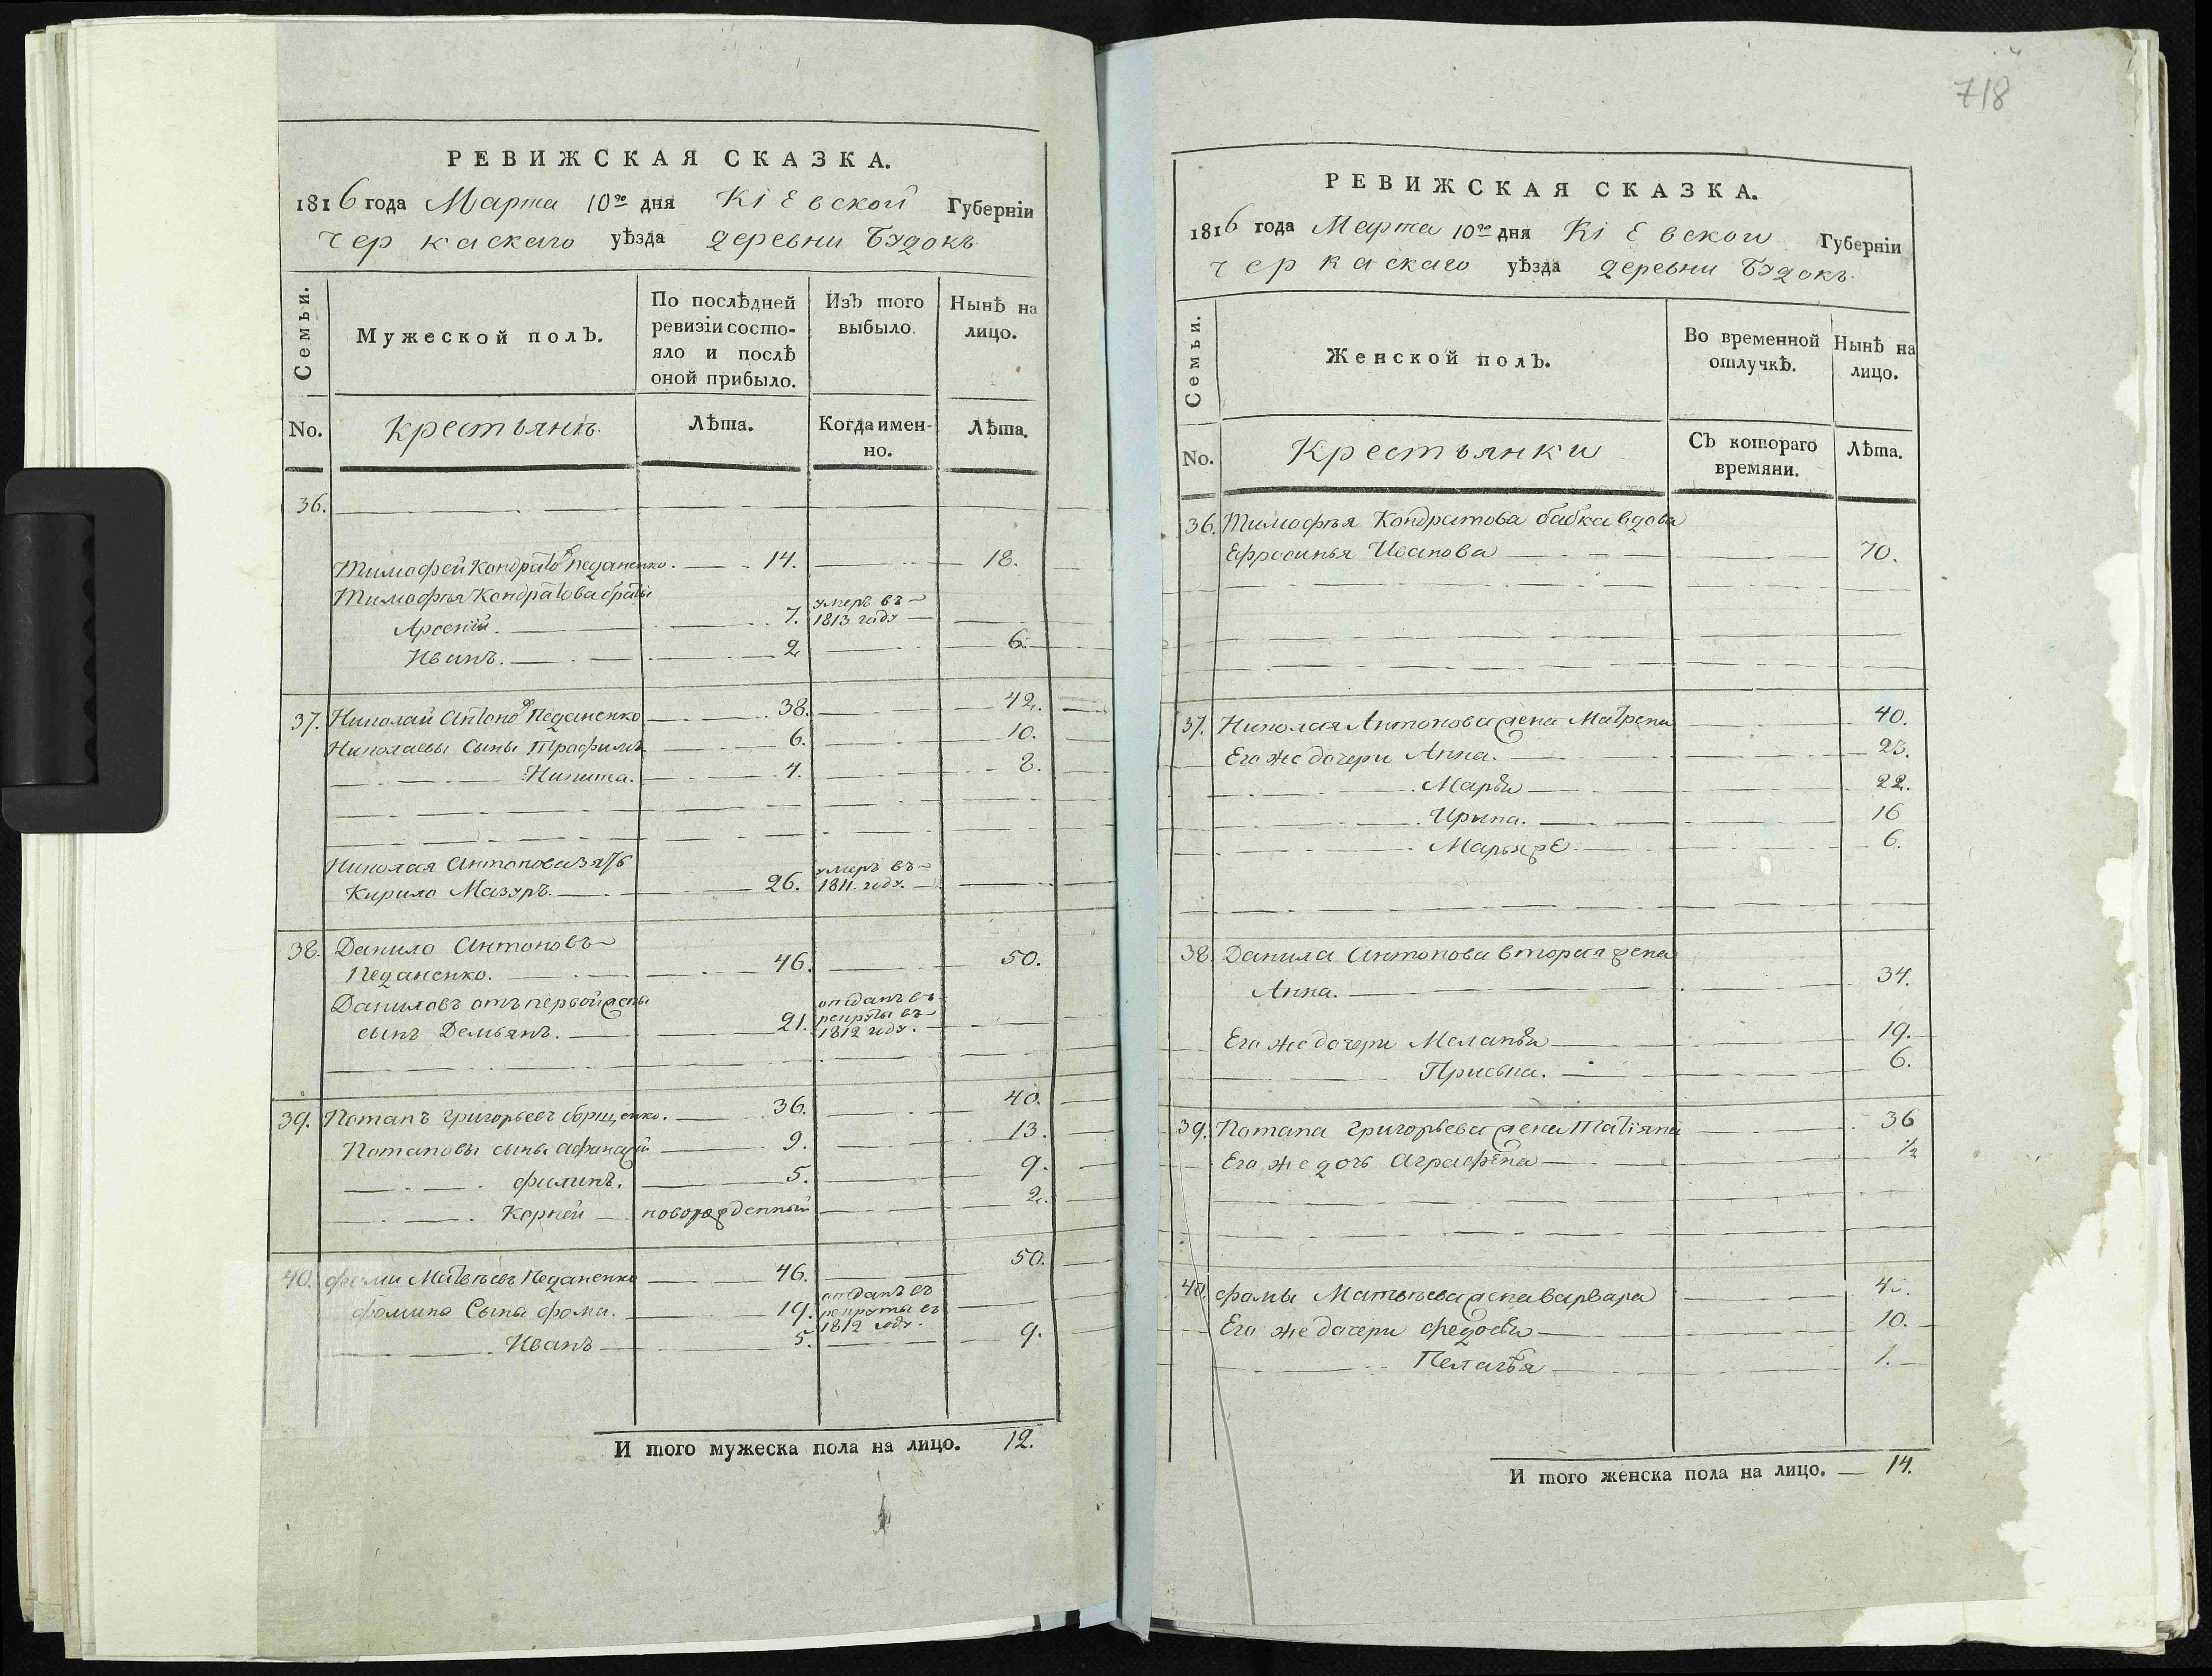 718
РЕВИЖСКАЯ СКАЗКА.
1816 года Марта 10го дня Кіевской Губерніи
черкаскаго уѣзда деревни Будокъ
Семьи.
Мужеской полъ.
По послѣдней ревизіи состояло и послѣ оной прибыло.
Изъ того выбыло.
Нынѣ на лицо.
No.
Крестьянѣ
Лѣта.
Когда именно.
Лѣта.
36.
Тимофей Кондратов Педаненко. 14. 18.
Тимофѣя Кондратова братьи
Арсеній. 7. умеръ въ 1813 году
Иванъ. 2 6.
37. Николай Антонов Педаненко 38. 42.
Николаевы Сыны Трофимъ. 6. 10.
Никита. 4. 8.
Николая Антонова зять
Кирило Мазуръ. 26. умеръ въ 1811 году.
38. Данило Антоновъ
Педаненко. 46. 50.
Даниловъ отъ первой жены
сынъ Демьянъ. 21. отданъ въ рекруты въ 1812 году.
39. Потапъ Григорьевъ Борщенко. 36. 40.
Потаповы сыны Афанасій 9. 13.
филипъ. 5. 9.
Корней новорожденный 2.
40. фома Матвѣевъ Педаненко 46. 50.
фомина Сына фома. 19. отданъ въ рекруты въ 1812 году.
Иванъ 5. 9.
И того мужеска пола на лицо. 12.
РЕВИЖСКАЯ СКАЗКА.
1816 года Марта 10го дня Кіевской Губерніи
черкаскаго уѣзда деревни Будокъ.
Семьи.
Женской полъ.
Во временной отлучкѣ.
Нынѣ на лицо.
No.
Крестьянки
Съ котораго времяни.
Лѣта.
36. Тимофѣя Кондратова бабка вдова
Ефросинья Иванова 70.
37. Николая Антонова жена Матрена 40.
Его же дочери Анна. 23.
Марья 22.
Ирина. 16
Марья же 6.
38. Данила Антонова вторая жена
Анна. 34.
Его же дочери Меланья 19.
Приська. 6.
39. Потапа Григорьева жена Татіяна 36
Его же дочь Аграфена ½
40. фомы Матвѣева жена Варвара
Его же дочери Федосья 10.
Пелагья 1.
И того женска пола на лицо. 14.